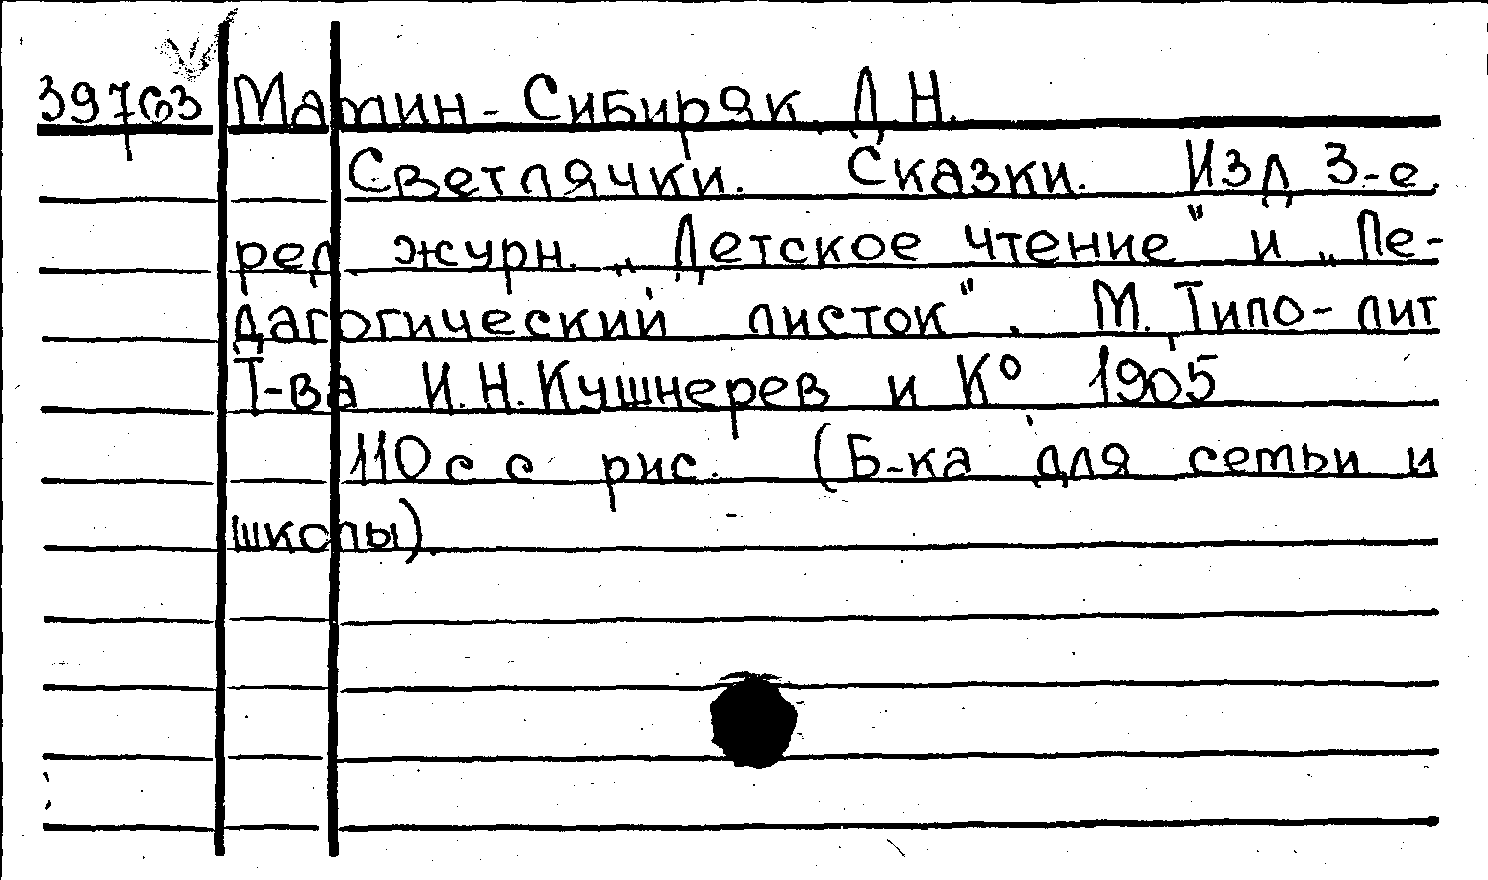 39763 Мамин-Сибиряк, Д.Н.
Светлячки. Сказки. Изд 3-е.
ред журн. „Детское чтение" и „Пе-
дагогический листок". М. Типо-лит
Т-ва И.Н.Кушнерев и К° 1905
110 с с рис. (Б-ка для семьи и
школы).